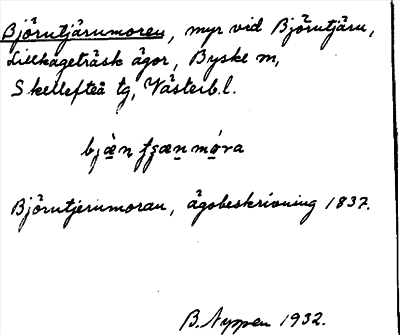 Björntjärnmoren, myr vid Björntjärn,
Lillkågeträsk ägor, Byske sn,
Skellefteå tg, Västerb.l.
Björntjernmoran, ägobeskrivning 1837.
B. Nyppen 1932.